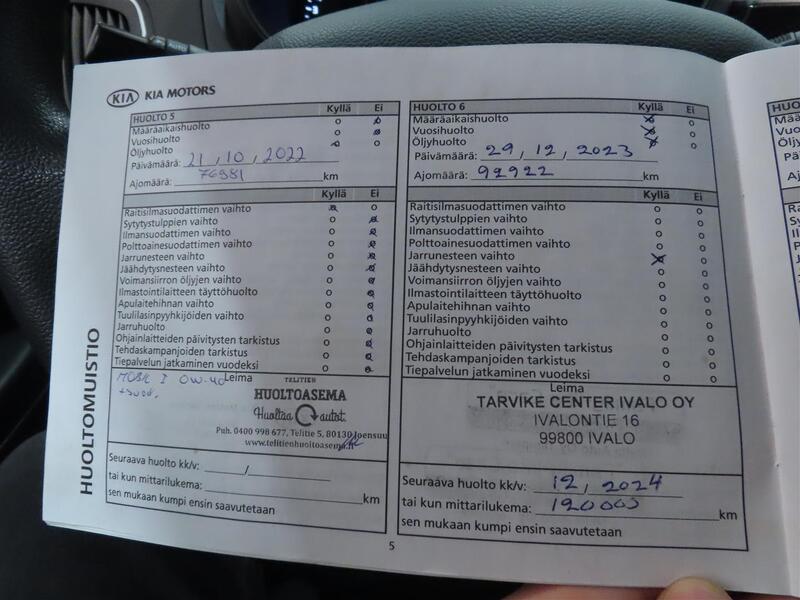 KIA KIA MOTORS
HUOLTOMUISTIO
HUOLTO 5 Kyllä Ei
Määräaikaishuolto
Vuosihuolto
Öljyhuolto
Päivämäärä: 21, 10, 2022
Ajomäärä: 76981 km
Kyllä Ei
Raitisilmasuodattimen vaihto
Sytytystulppien vaihto
Ilmansuodattimen vaihto
Polttoainesuodattimen vaihto
Jarrunesteen vaihto
Jäähdytysnesteen vaihto
Voimansiirron öljyjen vaihto
Ilmastointilaitteen täyttöhuolto
Apulaitehihnan vaihto
Tuulilasinpyyhkijöiden vaihto
Jarruhuolto
Ohjainlaitteiden päivitysten tarkistus
Tehdaskampanjoiden tarkistus
Tiepalvelun jatkaminen vuodeksi
Leima
MOBIL 1 0W-40
+suod.
TELITIEN
HUOLTOASEMA
Huoltaa autot.
Puh. 0400 998 677, Telitie 5, 80130 Joensuu
www.telitienhuoltoasema.fi
Seuraava huolto kk/v: /
tai kun mittarilukema: km
sen mukaan kumpi ensin saavutetaan
HUOLTO 6 Kyllä Ei
Määräaikaishuolto
Vuosihuolto
Öljyhuolto
Päivämäärä: 29, 12, 2023
Ajomäärä: 92922 km
Kyllä Ei
Raitisilmasuodattimen vaihto
Sytytystulppien vaihto
Ilmansuodattimen vaihto
Polttoainesuodattimen vaihto
Jarrunesteen vaihto
Jäähdytysnesteen vaihto
Voimansiirron öljyjen vaihto
Ilmastointilaitteen täyttöhuolto
Apulaitehihnan vaihto
Tuulilasinpyyhkijöiden vaihto
Jarruhuolto
Ohjainlaitteiden päivitysten tarkistus
Tehdaskampanjoiden tarkistus
Tiepalvelun jatkaminen vuodeksi
Leima
TARVIKE CENTER IVALO OY
IVALONTIE 16
99800 IVALO
Seuraava huolto kk/v: 12, 2024
tai kun mittarilukema: 120000 km
sen mukaan kumpi ensin saavutetaan
5